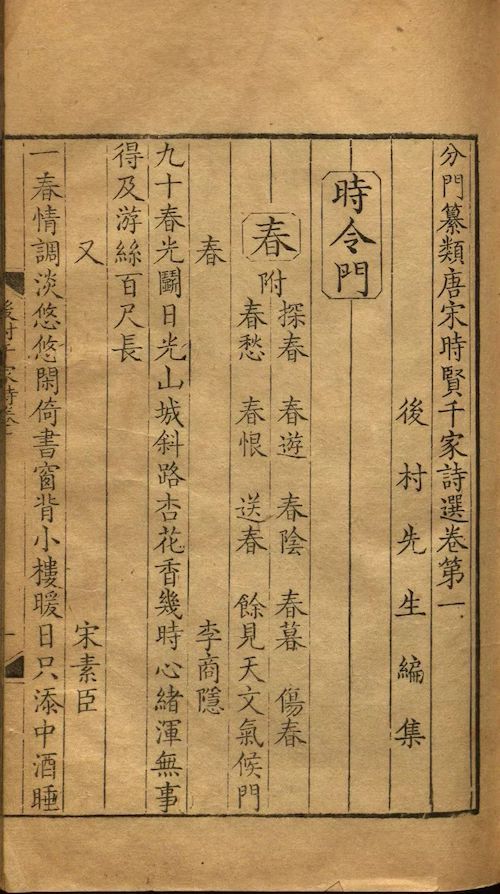 分門纂類唐宋時賢千家詩選卷第一
後村先生編集
時令門
春
附
探春 春遊 春陰 春暮 傷春
春愁 春恨 送春 餘見天文氣候門
春 李商隱
九十春光鬬日光山城斜路杏花香幾時心緒渾無事
得及游絲百尺長
又 宋素臣
一春情調淡悠悠閑倚書窗背小樓暖日只添中酒睡
後村千家詩卷一